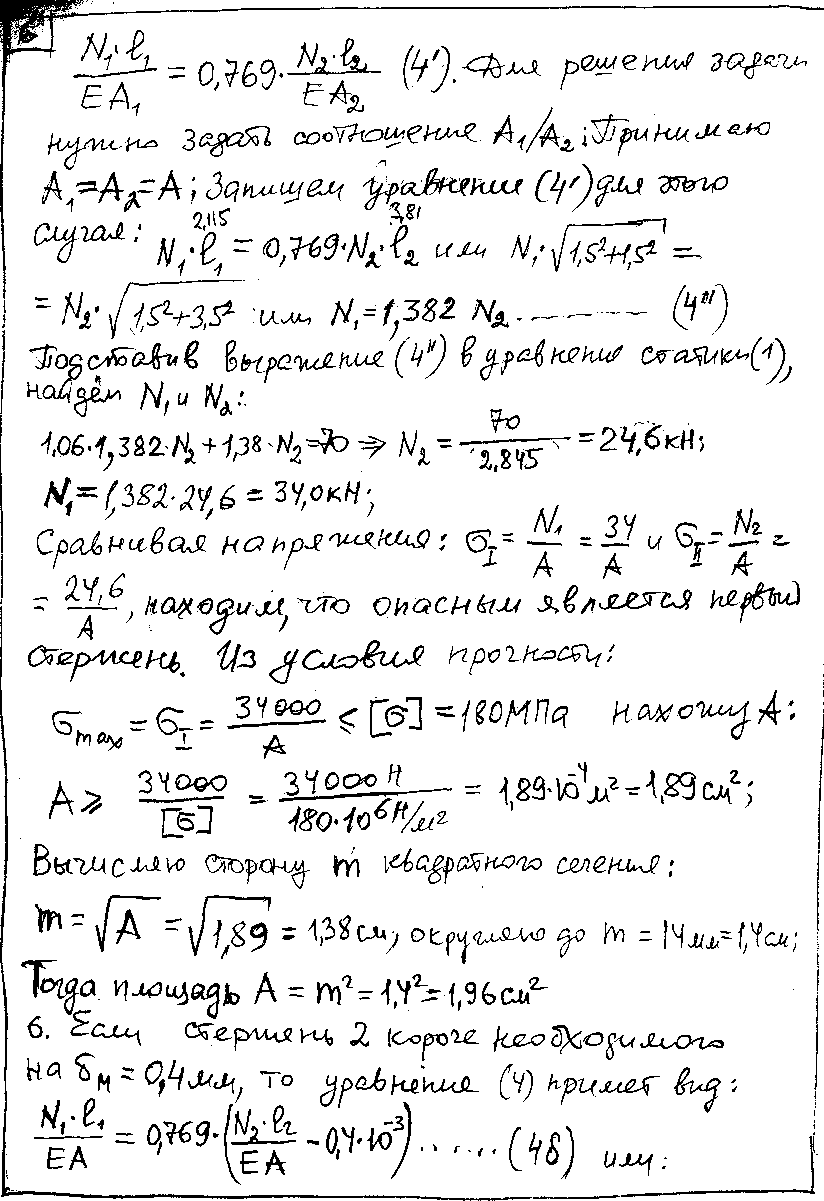 N₁·l₁/EA₁ = 0,769·N₂·l₂/EA₂ (4'). Для решения задачи
нужно задать соотношение A₁/A₂; Принимаю
A₁=A₂=A; Запишем уравнение (4') для этого
случая: N₁·l₁ (2,115) = 0,769·N₂·l₂ (3,81) или N₁·√(1,5²+1,5²) =
= N₂·√(1,5²+3,5²) или N₁=1,382 N₂ ........... (4''')
Подставив выражение (4'') в уравнение статики (1),
найдём N₁ и N₂:
1,06·1,382·N₂+1,38·N₂=70 ⇒ N₂ = 70/2,845 = 24,6кН;
N₁=1,382·24,6 = 34,0кН;
Сравнивая напряжения: σ_I = N₁/A = 34/A и σ_II = N₂/A =
= 24,6/A, находим, что опасным является первый
стержень. Из условия прочности:
σ_max = σ_I = 34000/A ≤ [σ] = 180МПа нахожу A:
A ≥ 34000/[σ] = 34000 Н/180·10⁶Н/м² = 1,89·10⁻⁴м² = 1,89см²;
Вычисляю сторону m квадратного сечения:
m=√A = √1,89 = 1,38см, округляю до m = 14мм=1,4см;
Тогда площадь A = m² = 1,4² = 1,96см²
6. Если стержень 2 короче необходимого
на δ_м = 0,4мм, то уравнение (4) примет вид:
N₁·l₁/EA = 0,769·(N₂·l₂/EA − 0,4·10⁻³) ...... (4б) или: